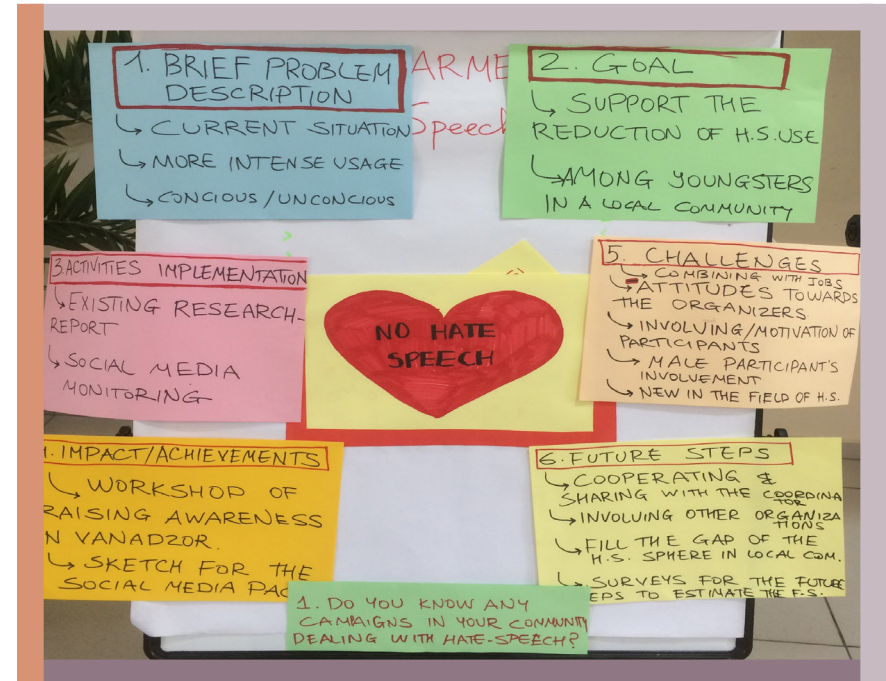 1. BRIEF PROBLEM
DESCRIPTION
↳ CURRENT SITUATION
↳ MORE INTENSE USAGE
↳ CONCIOUS / UNCONCIOUS
ARME
Speech
2. GOAL
↳ SUPPORT THE
REDUCTION OF H.S. USE
↳ AMONG YOUNGSTERS
IN A LOCAL COMMUNITY
3. ACTIVITIES IMPLEMENTATION
↳ EXISTING RESEARCH-
REPORT
↳ SOCIAL MEDIA
MONITORING
NO HATE
SPEECH
5. CHALLENGES
↳ COMBINING WITH JOBS
↳ ATTITUDES TOWARDS
THE ORGANIZERS
↳ INVOLVING/MOTIVATION OF
PARTICIPANTS
↳ MALE PARTICIPANT'S
INVOLVEMENT
↳ NEW IN THE FIELD OF H.S.
. IMPACT/ACHIEVEMENTS
↳ WORKSHOP OF
RAISING AWARENESS
N VANADZOR.
↳ SKETCH FOR THE
SOCIAL MEDIA PAG
6. FUTURE STEPS
↳ COOPERATING &
SHARING WITH THE COORDINA
TOR
↳ INVOLVING OTHER ORGANIZA
TIONS
↳ FILL THE GAP OF THE
H.S. SPHERE IN LOCAL COM.
↳ SURVEYS FOR THE FUTURE
EPS TO ESTIMATE THE F.S.
1. DO YOU KNOW ANY
CAMPAIGNS IN YOUR COMMUNITY
DEALING WITH HATE-SPEECH?